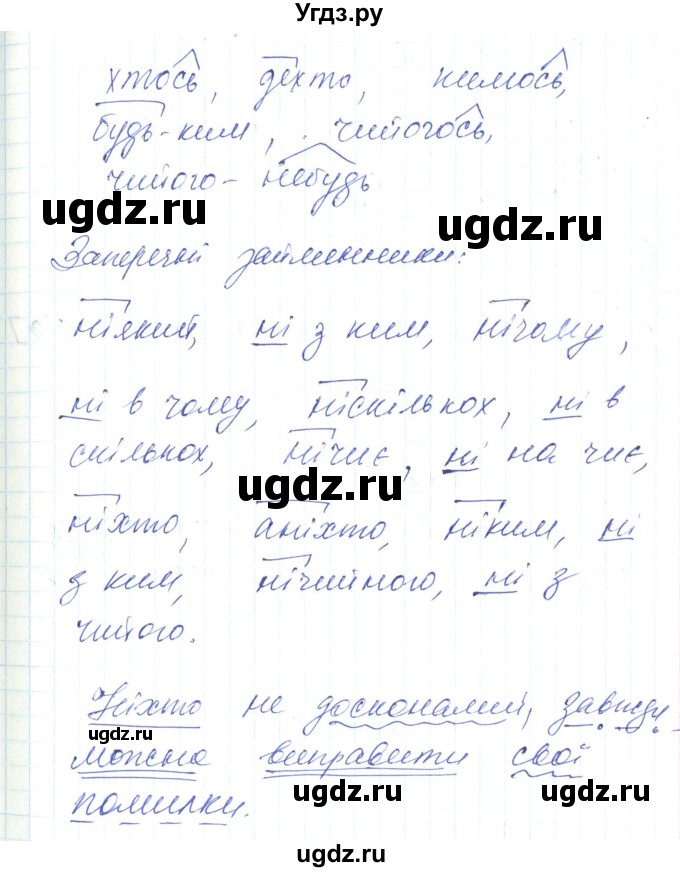 Угдз.ру
хтось, дехто, кимось,
будь-ким, чийогось,
чийого-небудь
ugdz.ru ugdz.ru
Заперечні займенники:
ніякий, ні з ким, нічому,
ні в чому, ніскількох, ні в
скількох, нічиє, ні на чиє,
ugdz.ru ugdz.ru
ніхто, аніхто, ніким, ні
з ким, нічийного, ні з
чийого.
Ніхто не досконалий, завжди
ugdz.ru
можна виправити свої
помилки.
ugdz.ru ugdz.ru
ugdz.ru